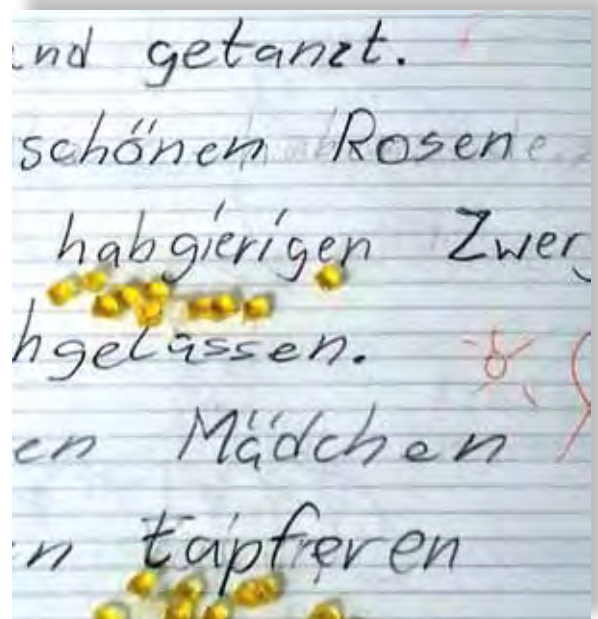 und getanzt.
schönen Rosen
habgierigen Zwerg
hgelassen.
en Mädchen
n tapferen